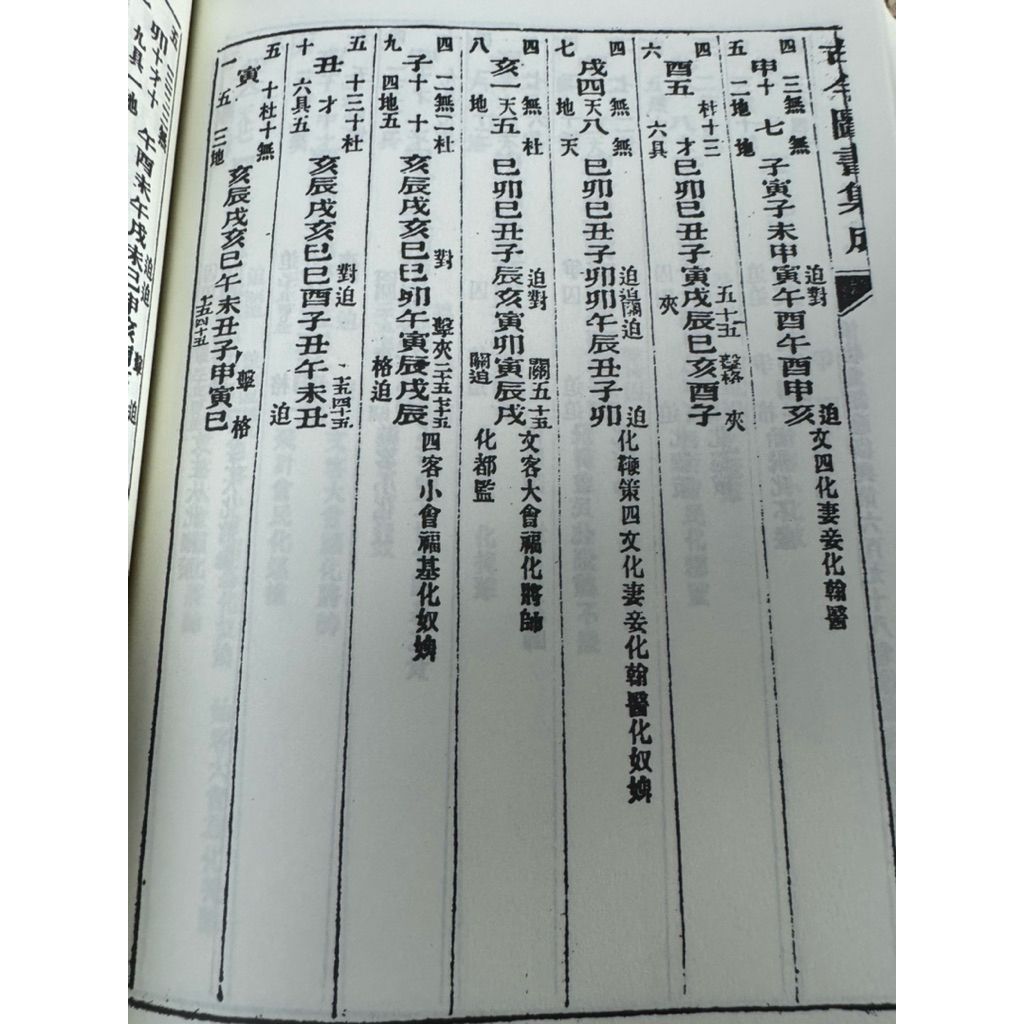 古今圖書集成
四 三無 無 迫對 迫 文四化妻妾化翰醫
申十 七 子寅子未申寅午酉午酉申亥
五 二地 地
四 杜十三 五十五 擊格 夾
酉五 才 巳卯巳丑子寅戌辰巳亥酉子
六 六具 夾
四 無 無 迫迫關迫 迫 化鞭策四文化妻妾化翰醫化奴婢
戌四天八 巳卯巳丑子卯卯午辰丑子卯
七 地 天
四 無 杜 迫對 關五十五 文客大會福化將帥
亥一天五 巳卯巳丑子辰亥寅卯寅辰戌
八 地 關迫 化都監
四 二無二杜 對 擊夾二十五七十五 四客小會福基化奴婢
子十 十 亥辰戌亥巳巳卯午寅辰戌辰
九 四地五 格迫
五 十三十杜 對迫 四十五
丑 才 亥辰戌亥巳巳酉子丑午未丑
十 六具五 迫
五 十杜十無 擊格
寅 五 亥辰戌亥巳午未丑子申寅巳
一 三地 五四十五
五 三三三無 迫迫 擊 迫
卯十才十 午酉未午戌未巳申亥
九具一地